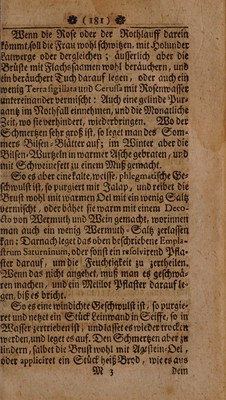 (181)
Wenn die Rose oder der Rothlauff darein
kömmt, soll die Frau wohl schwitzen, mit Holunder
Latwerge oder dergleichen; äusserlich aber die
Brüste mit Flachssaamen wohl beräuchern, und
ein beräuchert Tuch darauf legen, oder auch ein
wenig Terra sigillata und Ceruss- mit Rosenwasser
untereinander vermischt: Auch eine gelinde Pur-
ganz im Nothfall einnehmen, und die Monatliche
Zeit, wo sie verhindert, wiederbringen. Wo der
Schmertzen sehr groß ist, so leget man des Som-
mers Bilsen-Blätter auf; im Winter aber die
Bilsen-Wurtzeln in warmer Asche gebraten, und
mit Schweinefett zu einem Muß gemacht.
So es aber eine kalte, weisse, phlegmatische Ge-
schwulst ist, so purgiert mit Jalap, und reibet die
Brust wohl mit warmen Oel mit ein wenig Saltz
vermischt, oder bähet sie warm mit einem Deco-
cto von Wermuth und Wein gemacht, worinnen
man auch ein wenig Wermuth-Saltz zerlassen
kan: Darnach leget das oben beschriebene Empla-
strum Saturninum, oder sonst ein resolvirend Pfla-
ster darauf, um die Feuchtigkeit zu zertheilen.
Wenn das nicht angehet, muß man es geschwä-
ren machen, und ein Meilot Pflaster darauf le-
gen, biß es bricht.
So es eine windichte Geschwulst ist, so purgie-
ret und netzet ein Stück Leinwand in Seiffe, so in
Wasser zertrieben ist, und lasset es wieder trocken
werden, und leget es auf. Den Schmertzen aber zu
lindern, salbet die Brust wohl mit Agstein-Oel,
oder appliciret ein Stück heiß Brod, wie es aus
M 3 dem